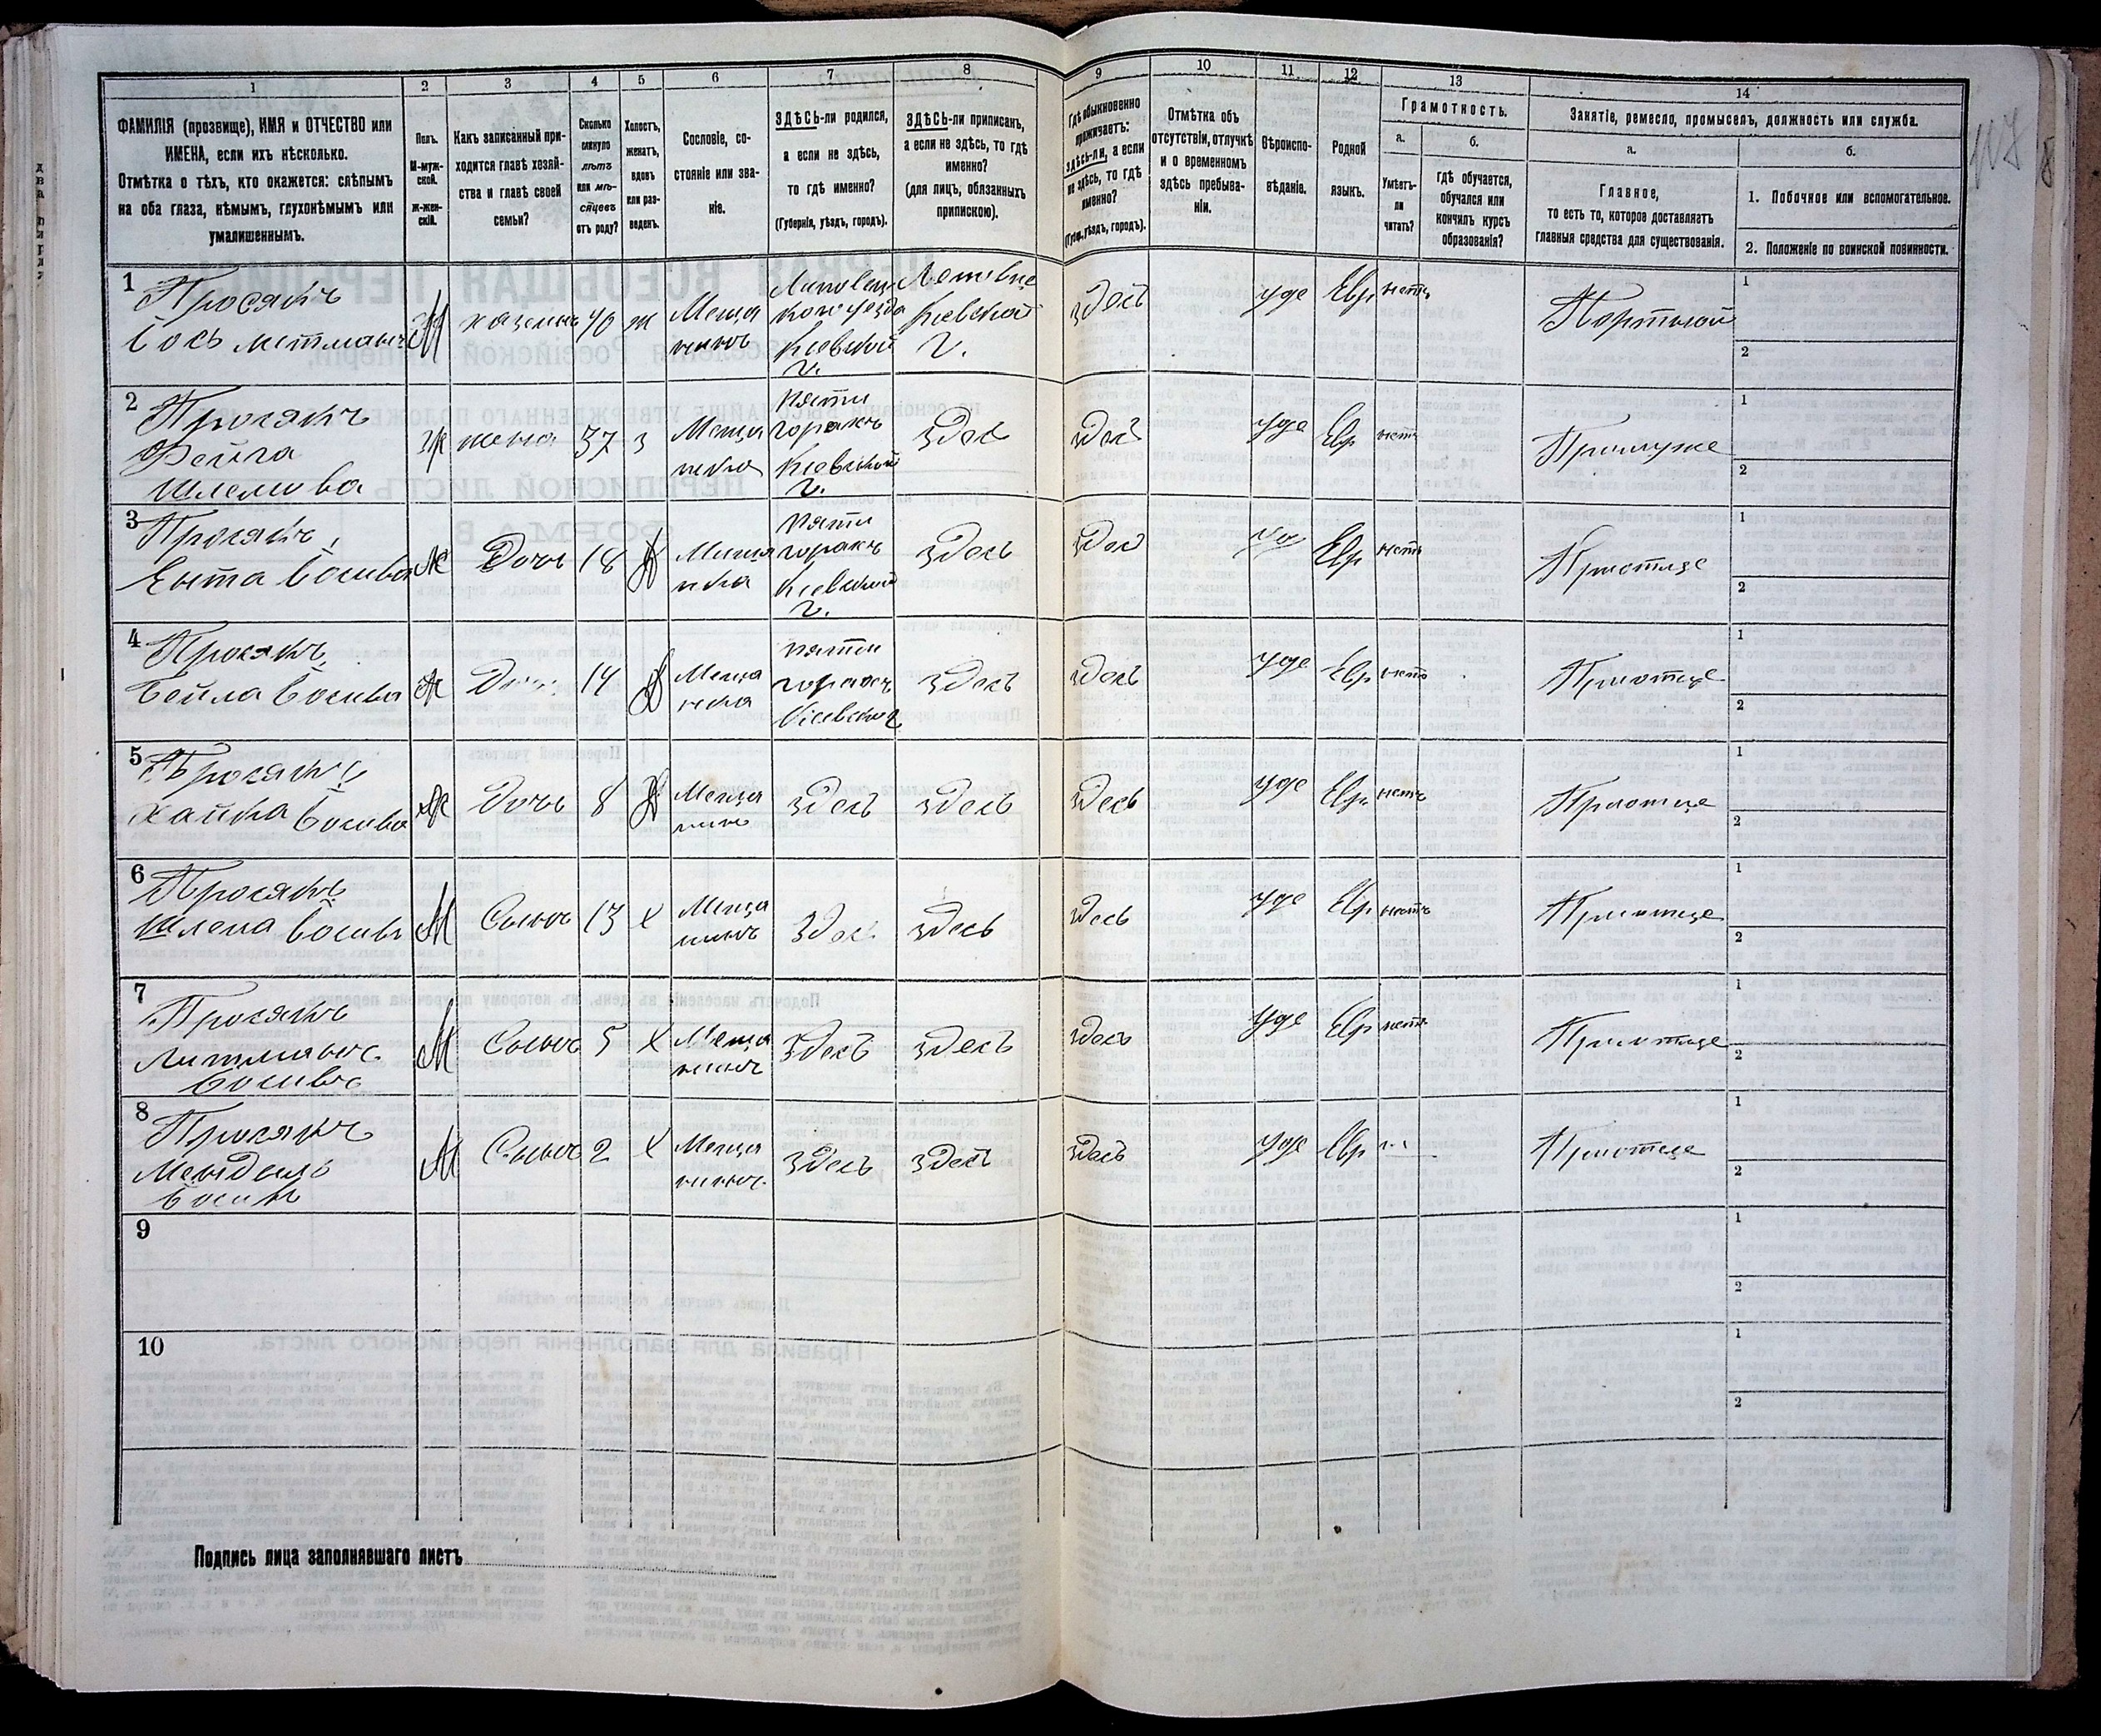 1 2 3 4 5 6 7 8 9 10 11 12 13 14
ФАМИЛІЯ (прозвище), ИМЯ и ОТЧЕСТВО или
ИМЕНА, если ихъ нѣсколько.
Отмѣтка о тѣхъ, кто окажется: слѣпымъ
на оба глаза, нѣмымъ, глухонѣмымъ или
умалишеннымъ.
Полъ.
М-муж-
ской.
Ж-жен-
скій.
Какъ записанный при-
ходится главѣ хозяй-
ства и главѣ своей
семьи?
Сколько
минуло
лѣтъ
или мѣ-
сяцевъ
отъ роду?
Холостъ,
женатъ,
вдовъ
или раз-
веденъ.
Сословіе, со-
стояніе или зва-
ніе.
ЗДѢСЬ-ли родился,
а если не здѣсь,
то гдѣ именно?
(Губернія, уѣздъ, городъ).
ЗДѢСЬ-ли приписанъ,
а если не здѣсь, то гдѣ
именно?
(для лицъ, обязанныхъ
припискою).
Гдѣ обыкновенно
проживаетъ:
здѣсь-ли, а если
не здѣсь, то гдѣ
именно?
(Губер., уѣздъ, городъ).
Отмѣтка объ
отсутствіи, отлучкѣ
и о временномъ
здѣсь пребыва-
ніи.
Вѣроиспо-
вѣданіе.
Родной
языкъ.
Грамотность.
а.
Умѣетъ-
ли
читать?
б.
гдѣ обучается,
обучался или
кончилъ курсъ
образованія?
Занятіе, ремесло, промыселъ, должность или служба.
а.
Главное,
то есть то, которое доставляетъ
главныя средства для существованія.
б.
1. Побочное или вспомогательное.
2. Положеніе по воинской повинности.
1
Просякъ
М хазяинъ 40 ж Меща
нинъ
Киевской
г.
Киевской
г.
здесь
уде Евр нетъ
Портной
1
2
2
Просякъ
Фейга
Шлемова
ж жена 37 з Меща
нка
Пяти
горахъ
Киевской
г.
здесь
здесь
уде Евр нетъ
Примуже
1
2
3
Просякъ
Ж Дочь 18 Меща
нка
Пяти
горахъ
Киевской
г.
здесь
здесь
уде Евр нетъ
Приотце
1
2
4
Просякъ
Бейла Иосива
Ж 14 Меща
нка
Пяти
горахъ
Киевской
здесь
здесь
уде Евр нетъ
Приотце
1
2
5
Просякъ
Хайка Иосива
Ж Дочь 8 Меща
здесь
здесь
здесь
уде Евр нетъ
Приотце
1
2
6
Просякъ
Шлема Иосивъ
М Сынъ 13 х Меща
нинъ
здесь
здесь
здесь
уде Евр нетъ
Приотце
1
2
7
Просякъ
Литманъ
Иосивъ
М Сынъ 5 х Меща
нинъ
здесь
здесь
здесь
уде Евр нетъ
Приотце
1
2
8
Просякъ
Мендиль
М Сынъ 2 х Меща
нинъ
здесь
здесь
здесь
уде Евр
Приотце
1
2
9
1
2
10
1
2
Подпись лица заполнявшаго листъ